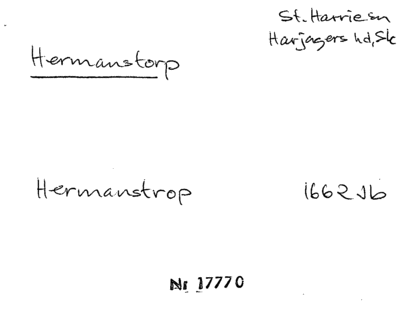 St. Harrie sn
Harjagers hd, Sk
Hermanstorp
Hermanstrop
1662 Jb
Nr 17770